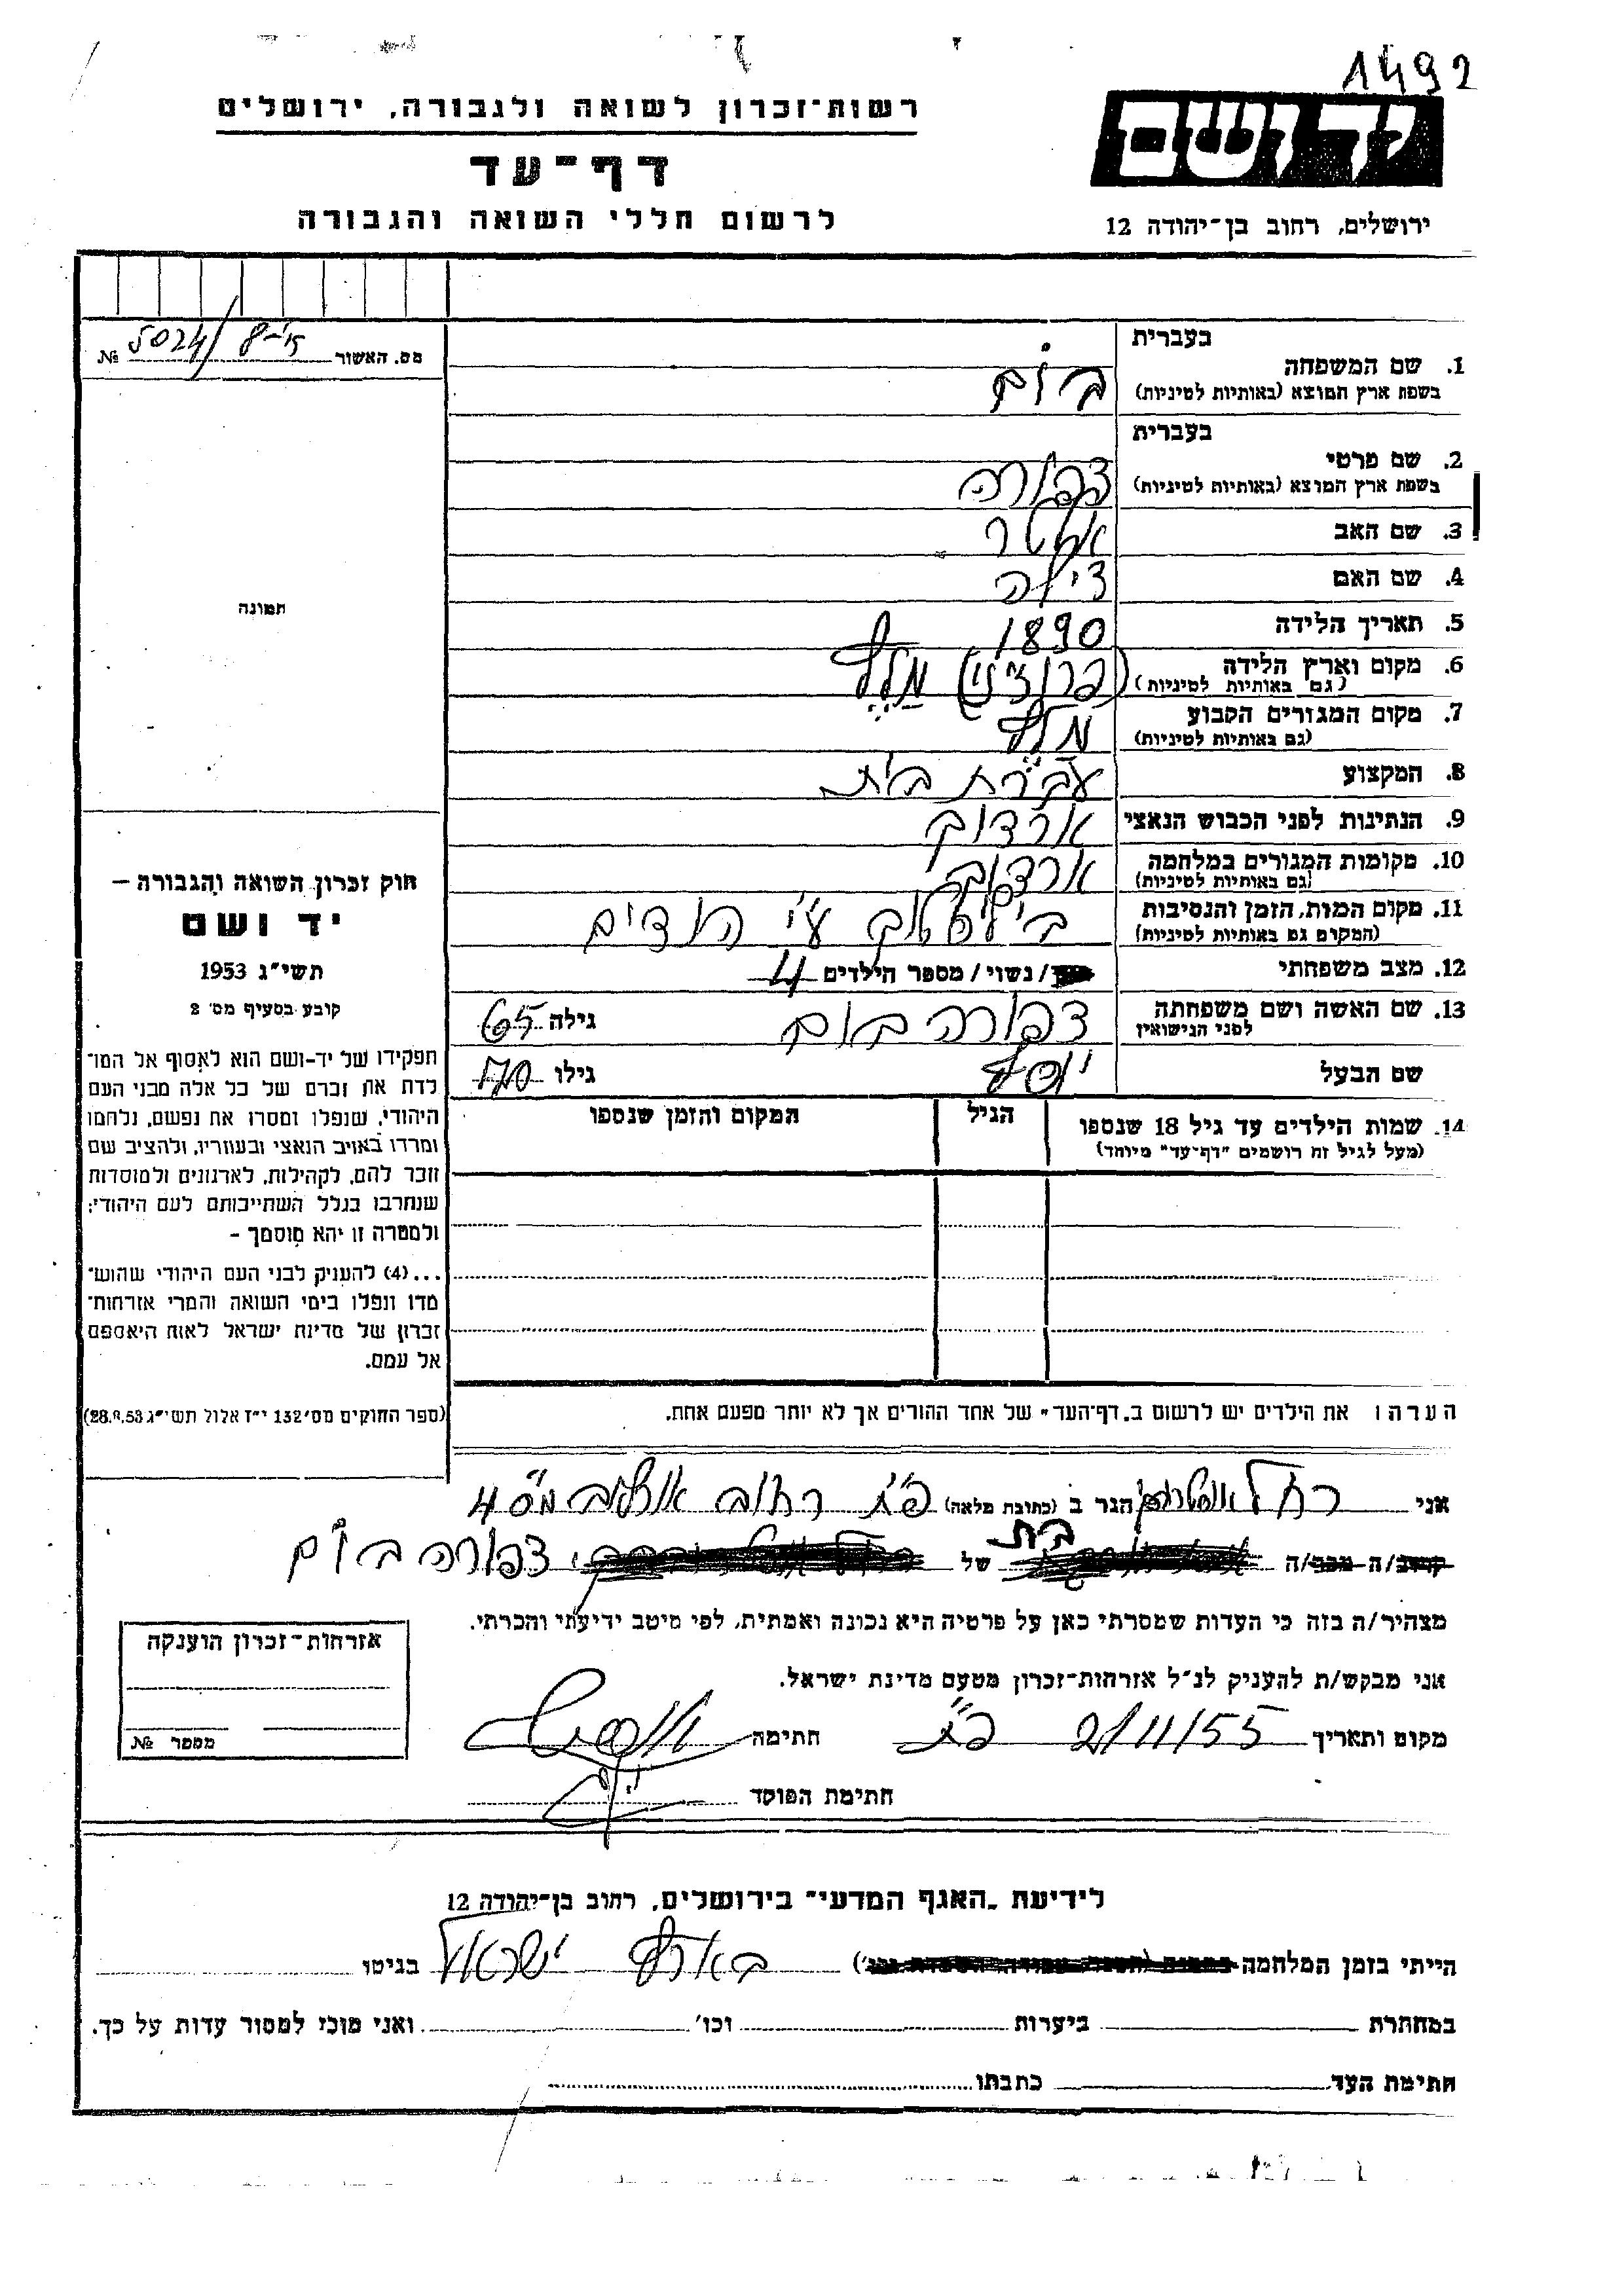 1492
יד ושם
רשות־זכרון לשואה ולגבורה, ירושלים
דף־עד
לרשום חללי השואה והגבורה
ירושלים, רחוב בן־יהודה 12
מס. האשור 5024/ 8-יז №
בעברית
1. שם המשפחה
בשפת ארץ המוצא (באותיות לטיניות)
בּוֹם
בעברית
2. שם פרטי
בשפת ארץ המוצא (באותיות לטיניות)
צפורה
3. שם האב
4. שם האם צילה
5. תאריך הלידה 1890
6. מקום וארץ הלידה
(גם באותיות לטיניות)
7. מקום המגורים הקבוע
(גם באותיות לטיניות)
8. המקצוע עקרת בית
9. הנתינות לפני הכבוש הנאצי
10. מקומות המגורים במלחמה
(גם באותיות לטיניות)
11. מקום המות, הזמן והנסיבות
(המקום גם באותיות לטיניות)
ביליסטוק ע"י הנאצים
12. מצב משפחתי /נשוי/ מספר הילדים 4
13. שם האשה ושם משפחתה
לפני הנישואין
צפורה בום גילה 65
שם הבעל יוסף גילו 70
14. שמות הילדים עד גיל 18 שנספו
(מעל לגיל זה רושמים "דף־עד" מיוחד)
הגיל
המקום והזמן שנספו
תמונה
חוק זכרון השואה והגבורה –
יד ושם
תשי"ג 1953
קובע בסעיף מס' 2
תפקידו של יד-ושם הוא לאסוף אל המו־
לדת את זכרם של כל אלה מבני העם
היהודי, שנפלו ומסרו את נפשם, נלחמו
ומרדו באויב הנאצי ובעוזריו, ולהציב שם
וזכר להם, לקהילות, לארגונים ולמוסדות
שנחרבו בגלל השתייכותם לעם היהודי;
ולמטרה זו יהא מוסמך –
...(4) להעניק לבני העם היהודי שהוש־
מדו ונפלו בימי השואה והמרי אזרחות־
זכרון של מדינת ישראל לאות היאספם
אל עמם.
(ספר החוקים מס' 132 י"ז אלול תשי"ג 28.8.53)
הערה: את הילדים יש לרשום ב„דף־העד" של אחד ההורים אך לא יותר מפעם אחת.
אני רחל הגר ב (כתובת מלאה) פ"ת רחוב מס 4
קרוב/ה מכר/ה בת של צפורה בּוֹם
מצהיר/ה בזה כי העדות שמסרתי כאן על פרטיה היא נכונה ואמתית, לפי מיטב ידיעתי והכרתי.
אני מבקש/ת להעניק לנ"ל אזרחות־זכרון מטעם מדינת ישראל.
מקום ותאריך 2/11/55 פ"ת חתימה
חתימת הפוקד
אזרחות־זכרון הוענקה
מספר №
לידיעת „האגף המדעי" בירושלים, רחוב בן־יהודה 12
הייתי בזמן המלחמה בארץ ישראל בגיטו
במחתרת ביערות וכו' ואני מוכן למסור עדות על כך.
חתימת העד כתבתו